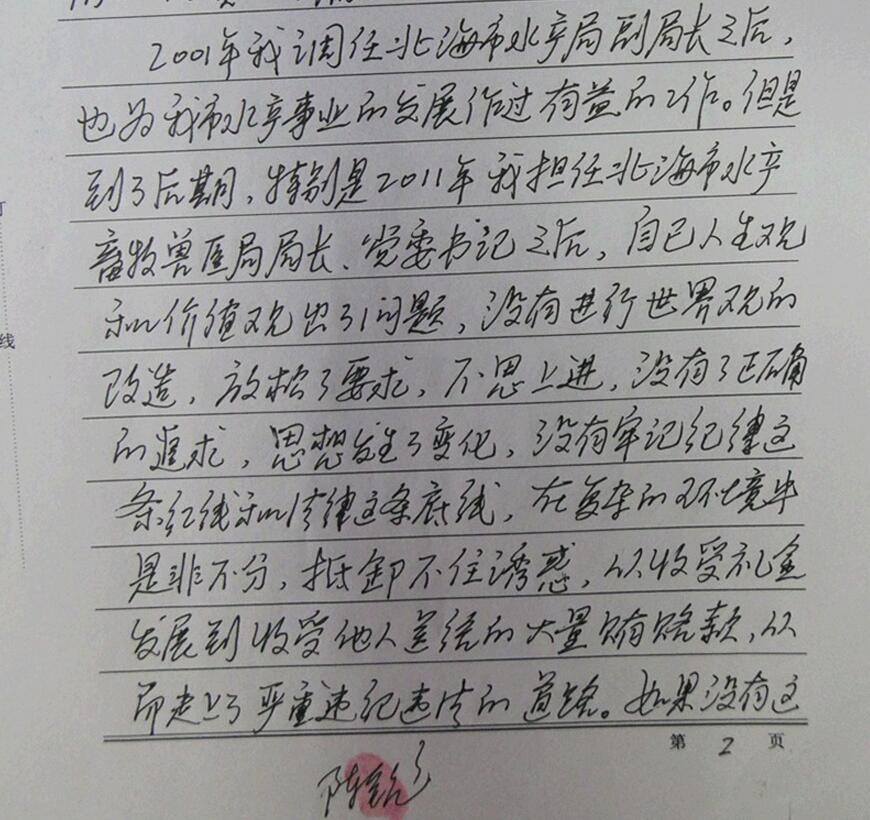 2001年我调任北海市水产局副局长之后，
也为我市水产事业的发展作过有益的工作。但是
到了后期，特别是2011年我担任北海市水产
畜牧兽医局局长、党委书记之后，自己人生观
和价值观出了问题，没有进行世界观的
改造，放松了要求，不思上进，没有了正确
的追求，思想发生了变化，没有牢记纪律这
条红线和法律这条底线，在复杂的环境中
是非不分，抵御不住诱惑，从收受礼金
发展到收受他人送给的大量贿赂款，从
而走上了严重违纪违法的道路。如果没有这
第 2 页
陈
线